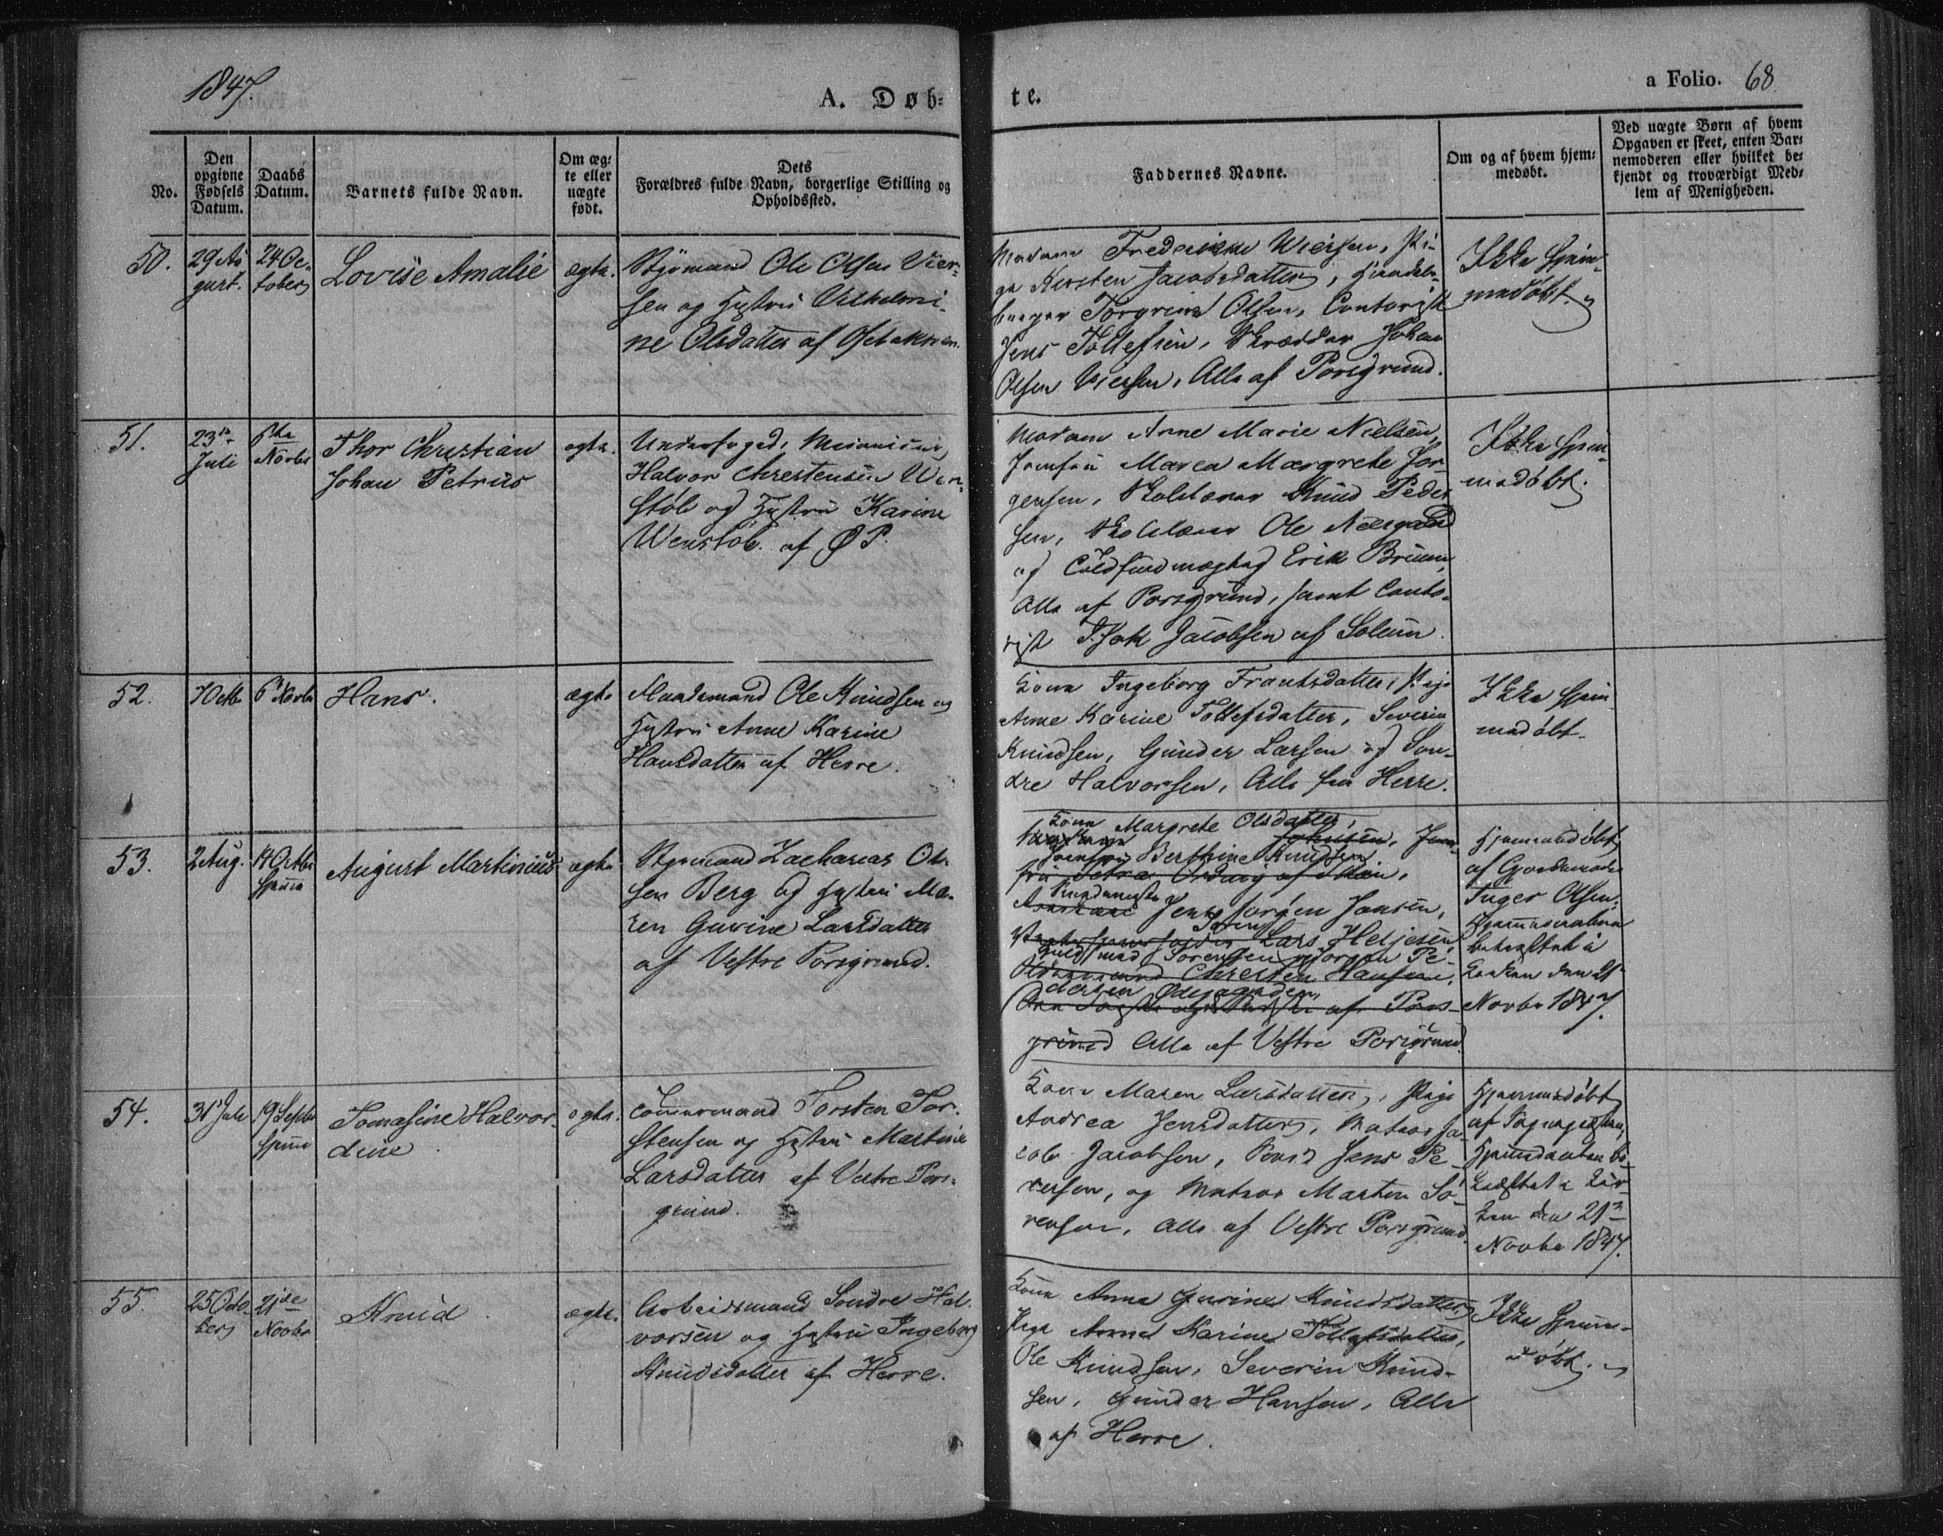 1847.
A. Døb-
te.
a Folio. 68
No.
Den
opgivne
Fødsels
Datum.
Daabs
Datum.
Barnets fulde Navn.
Om æg-
te eller
uægte
født.
Dets
Forældres fulde Navn, borgerlige Stilling og
Opholdssted.
Faddernes Navne.
Om og af hvem hjem-
medøbt.
Ved uægte Børn af hvem
Opgaven er skeet, enten Bar-
nemoderen eller hvilket be-
kjendt og troværdigt Med-
lem af Menigheden.
50.
29 Au
gust.
24 Oc-
tober
Lovise Amalie
ægte.
Styrmand Ole Olsen Vier-
sen og Hustru Vilhelmi-
ne Olsdatter af
Madam Frederikke Wiersen, Pi-
ge Kirsten Jacobsdatter, Handels-
borger Torgrim Olsen, Contorist
Jens Tollefsen, Skrædder Johan
Olsen Viersen, Alle af Porsgrund.
Ikke hjem-
medøbt.
51.
23
Juli
Novbr
Thor Christian
Johan Petrus
ægte.
Underfoged,
Halvor Christensen Wen-
støb og Hustru Karine
Wenstøb. af Ø P.
Madam Anne Marie Nielsen,
Jomfru Maren Margrete Jør-
gensen, Skolelærer Knud Peder
sen, Skolelærer Ole
og Toldfuldmægtig Erik Bruun,
Alle af Porsgrund, samt Conto-
rist Isak Jacobsen af Solum.
Ikke hjem-
medøbt.
52.
7 Octbr
6 Novbr
Hans.
ægte
Maadsmand Ole Knudsen og
Hustru Anne Karine
Hansdatter af Herre.
Kone Ingeborg Frantsdatter, Pige
Anne Karine Tollefsdatter, Severin
Knudsen, Gunder Larsen og Son-
dre Halvorsen, Alle fra Herre.
Ikke hjem
medøbt.
53.
2 Aug.
14 Octbr
hjem
August Martinius
ægte
Styrmand Zacharias Ol-
sen Berg og Hustru Ma-
ren Gurine Larsdatter
af Vestre Porsgrund.
Kone Margrete Olsdatter,
Jomfru Berthine Knudsen
Jens Jørgen Jansen,
Lars Heljesen
Sorensen
Christen Hansen,
dersen
af Pors-
grund Alle af Vestre Porsgrund.
Hjemmedøbt
af Gjordemoder
Inger Olsen.
Hjemmedaaben
bekræftet i
Kirken den 21
Novbr 1847.
54.
31 Juli
19 Septbr
hjem
Tomasine Halvor-
dine
ægte.
Tømmermand Torsten Tor-
stensen og Hustru Martine
Larsdatter af Vestre Pors-
grund.
Kone Maren Larsdatter, Pige
Andrea Jensdatter, Matros Ja-
cob Jacobsen, Jens Pe-
dersen, og Matros Morten Sö-
rensen, Alle af Vestre Porsgrund.
Hjemmedøbt
af Sognepresten,
Hjemmedaaben be-
kræftet i Kir-
ken den 21
Novbr 1847.
55.
25 Octo-
ber
21de
Novbr
Knud
ægte.
Arbeidsmand Sondre Hal-
vorsen og Hustru Ingeborg
Knudsdatter af Herre.
Kone Anne Gurine Knudsdatter,
Pige Anne Karine Tollefsdatter,
Ole Knudsen, Severin Knud-
sen, Gunder Hansen, Alle
af Herre.
Ikke hjemme-
døbt.